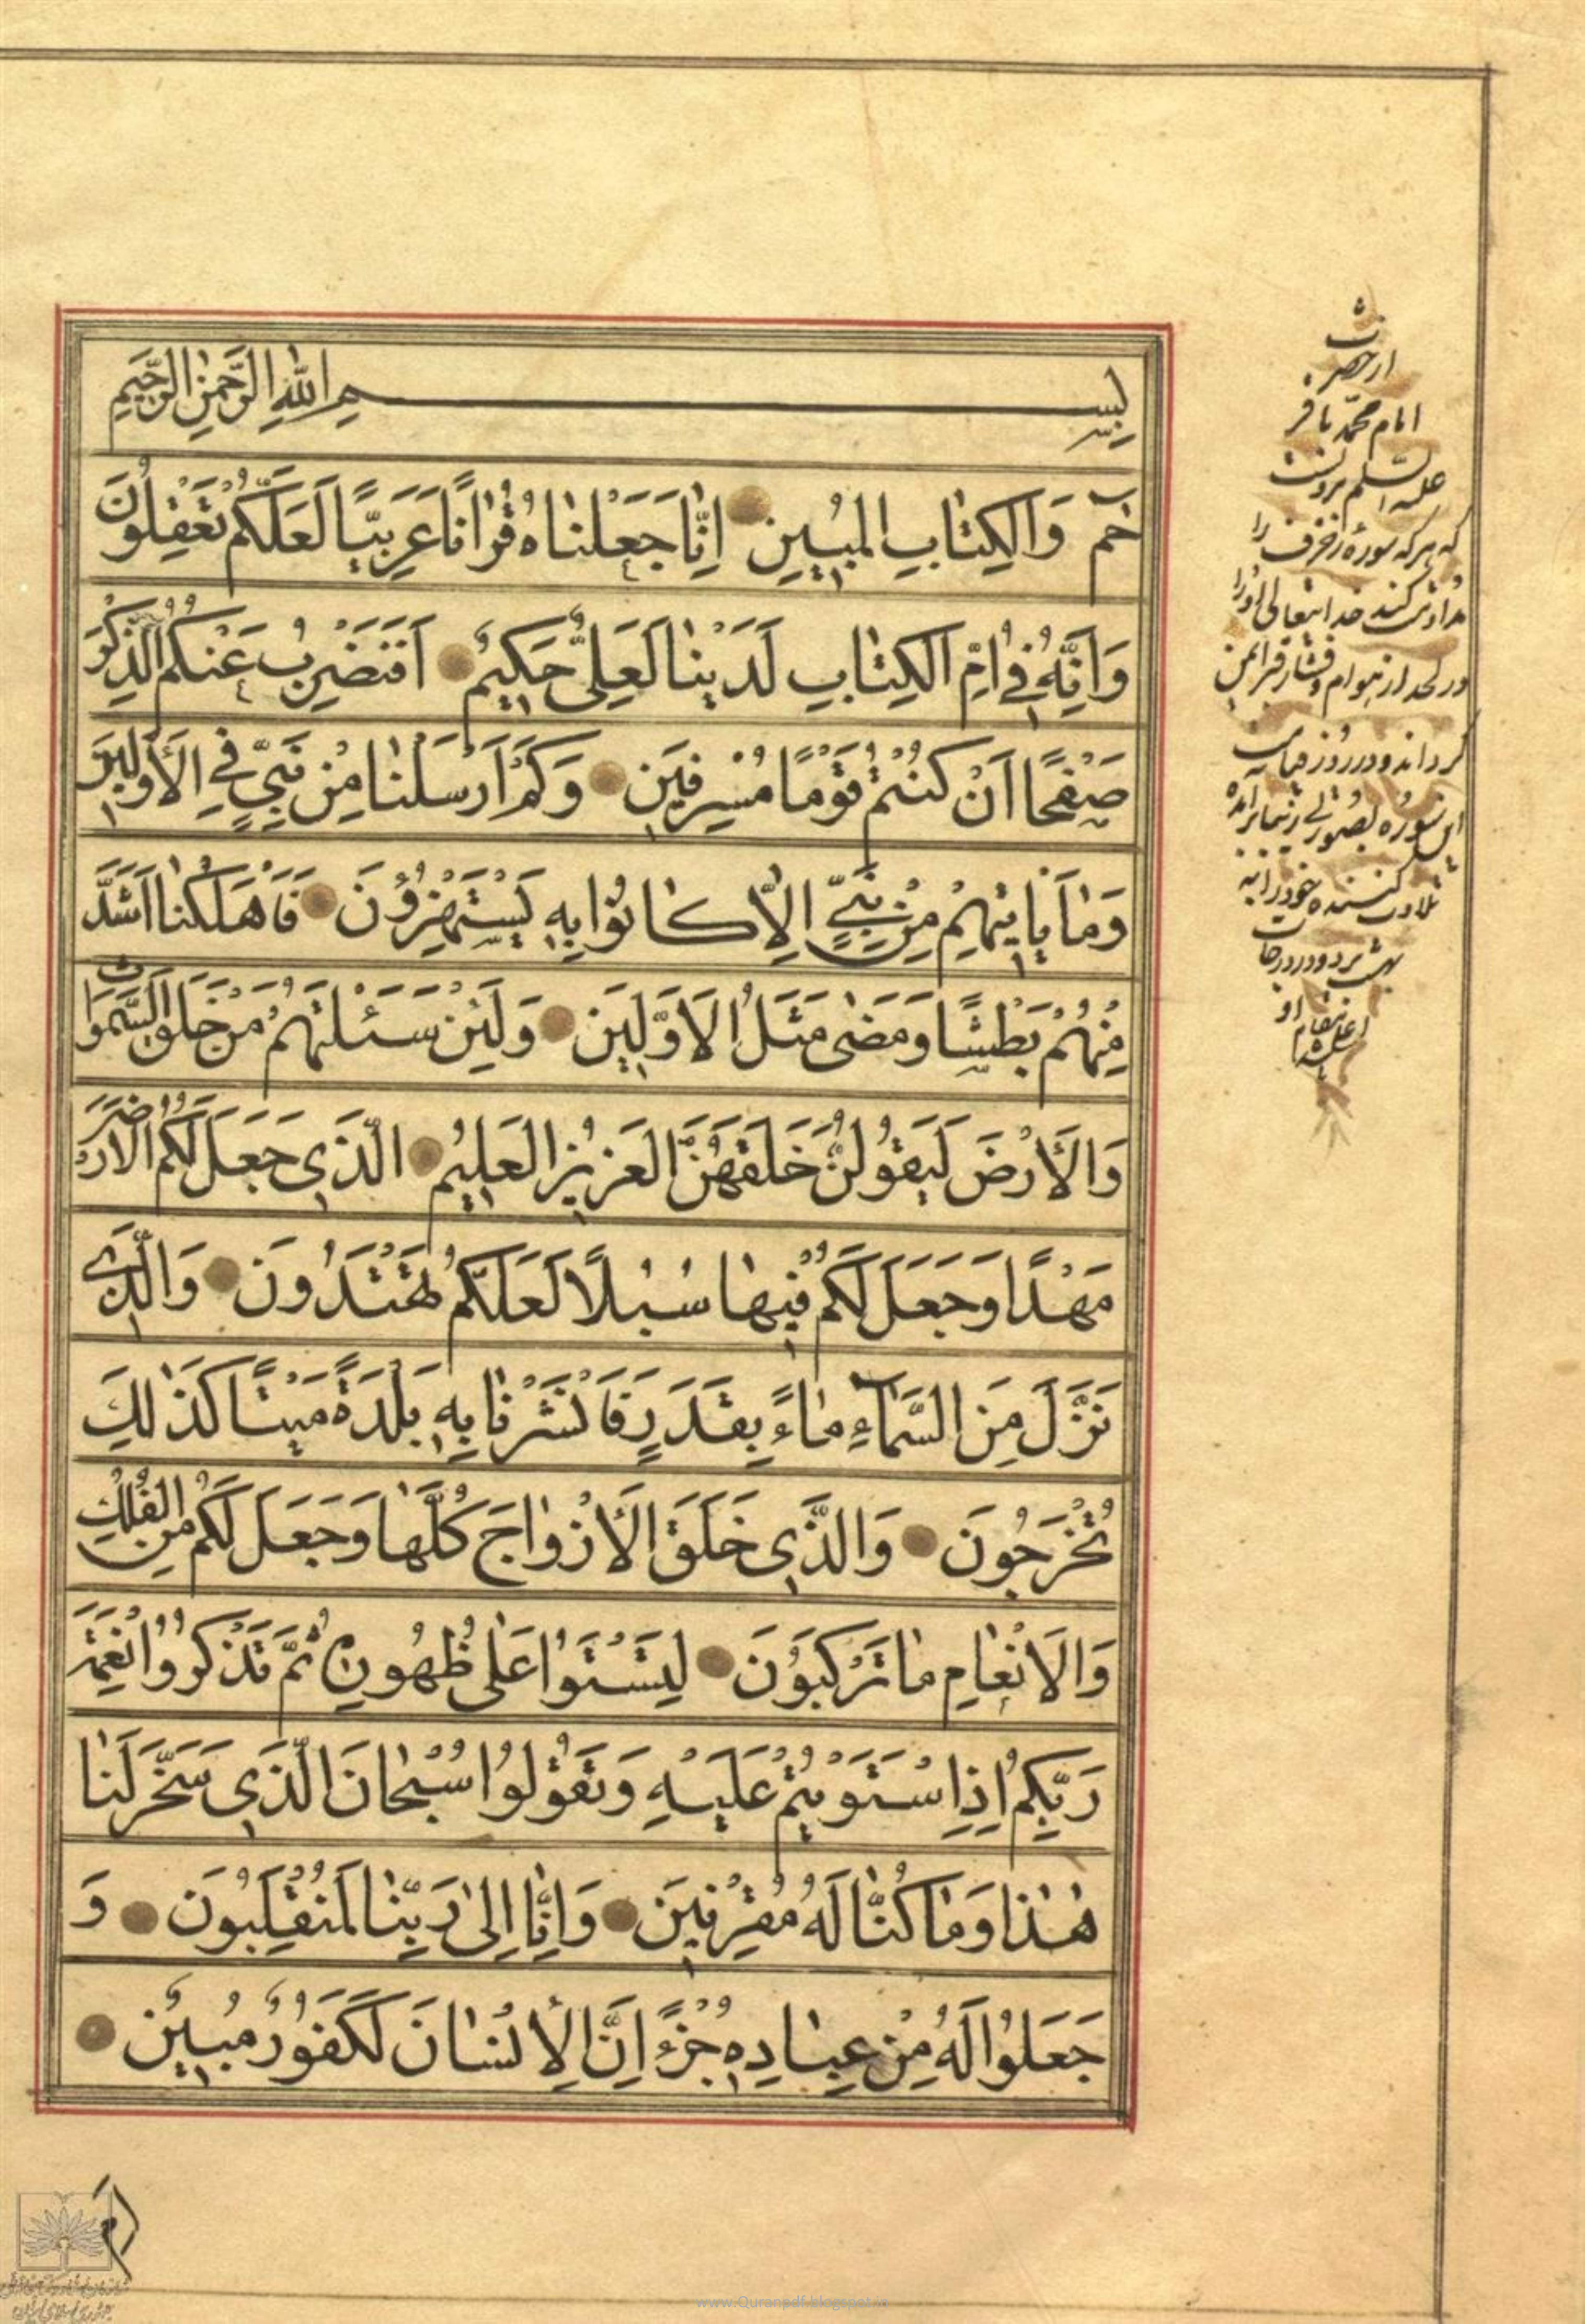 بِسْمِ اللهِ الرَّحْمٰنِ الرَّحِيمِ
حٰمٓ وَالْكِتٰابِ الْمُبِينِ اِنّٰا جَعَلْنٰاهُ قُرْاٰنًا عَرَبِيًّا لَعَلَّكُمْ تَعْقِلُونَ
وَاِنَّهُ فِي اُمِّ الْكِتٰابِ لَدَيْنٰا لَعَلِيٌّ حَكِيمٌ اَفَنَضْرِبُ عَنْكُمُ الذِّكْرَ
صَفْحًا اَنْ كُنْتُمْ قَوْمًا مُسْرِفِينَ وَكَمْ اَرْسَلْنٰا مِنْ نَبِيٍّ فِي الْاَوَّلِينَ
وَمٰا يَاْتِيهِمْ مِنْ نَبِيٍّ اِلّٰا كٰانُوا بِهِ يَسْتَهْزِؤُنَ فَاَهْلَكْنٰا اَشَدَّ
مِنْهُمْ بَطْشًا وَمَضٰى مَثَلُ الْاَوَّلِينَ وَلَئِنْ سَئَلْتَهُمْ مَنْ خَلَقَ السَّمٰوَاتِ
وَالْاَرْضَ لَيَقُولُنَّ خَلَقَهُنَّ الْعَزِيزُ الْعَلِيمُ الَّذِي جَعَلَ لَكُمُ الْاَرْضَ
مَهْدًا وَجَعَلَ لَكُمْ فِيهٰا سُبُلًا لَعَلَّكُمْ تَهْتَدُونَ وَالَّذِي
نَزَّلَ مِنَ السَّمٰاءِ مٰاءً بِقَدَرٍ فَاَنْشَرْنٰا بِهِ بَلْدَةً مَيْتًا كَذٰلِكَ
تُخْرَجُونَ وَالَّذِي خَلَقَ الْاَزْوٰاجَ كُلَّهٰا وَجَعَلَ لَكُمْ مِنَ الْفُلْكِ
وَالْاَنْعٰامِ مٰا تَرْكَبُونَ لِتَسْتَوُا عَلٰى ظُهُورِهِ ثُمَّ تَذْكُرُوا نِعْمَةَ
رَبِّكُمْ اِذَا اسْتَوَيْتُمْ عَلَيْهِ وَتَقُولُوا سُبْحٰانَ الَّذِي سَخَّرَ لَنٰا
هٰذٰا وَمٰا كُنّٰا لَهُ مُقْرِنِينَ وَاِنّٰا اِلٰى رَبِّنٰا لَمُنْقَلِبُونَ وَ
جَعَلُوا لَهُ مِنْ عِبٰادِهِ جُزْءً اِنَّ الْاِنْسٰانَ لَكَفُورٌ مُبِينٌ
از حضرت
امام محمد باقر
علیه السلم مرویست
که هر که سوره زخرف را
مداومت کند خدایتعالی او را
در لحد از هوام و فشار قبر ایمن
گرداند و در روز قیامت
این سوره بصورتی زیبا برآمده
تلاوت کننده خود را به
بهشت برد و در درجات
اَم
www.Quranpdf.blogspot.in